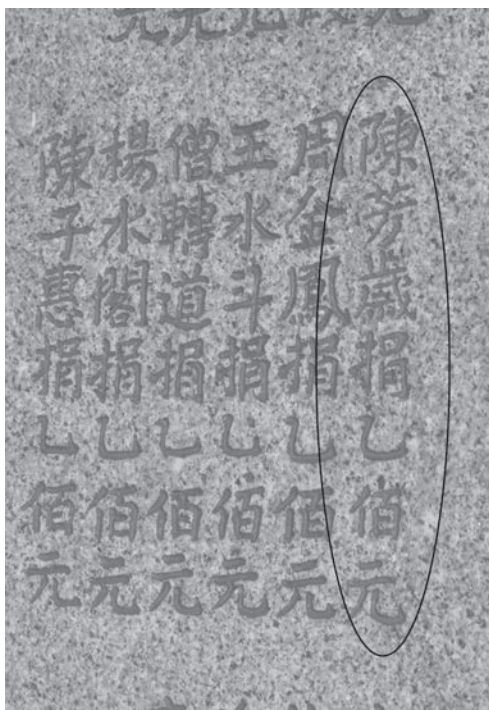 陳芳歲捐乙佰元
周金鳳捐乙佰元
王水斗捐乙佰元
僧轉道捐乙佰元
楊水閣捐乙佰元
陳子惠捐乙佰元